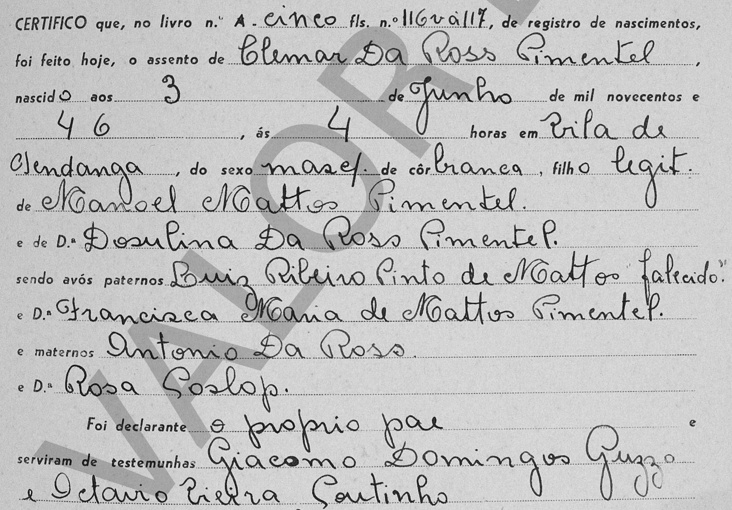 CERTIFICO que, no livro n.º A. cinco fls. n.º 116v à 117, de registro de nascimentos,
foi feito hoje, o assento de Clemar Da Ross Pimentel,
nascido aos 3 de Junho de mil novecentos e
46, ás 4 horas em Vila de
, do sexo masc/. de côr branca, filho legit.
de Manoel Mattos Pimentel.
e de D.ª Dosulina Da Ross Pimentel.
sendo avós paternos Luiz Ribeiro Pinto de Mattos falecido."
e D.ª Francisca Maria de Mattos Pimentel.
e maternos Antonio Da Ross.
e D.ª Rosa
Foi declarante o proprio pae e
serviram de testemunhas Giacomo Domingos Guzzo
e Octavio Vieira Coutinho
VALOR